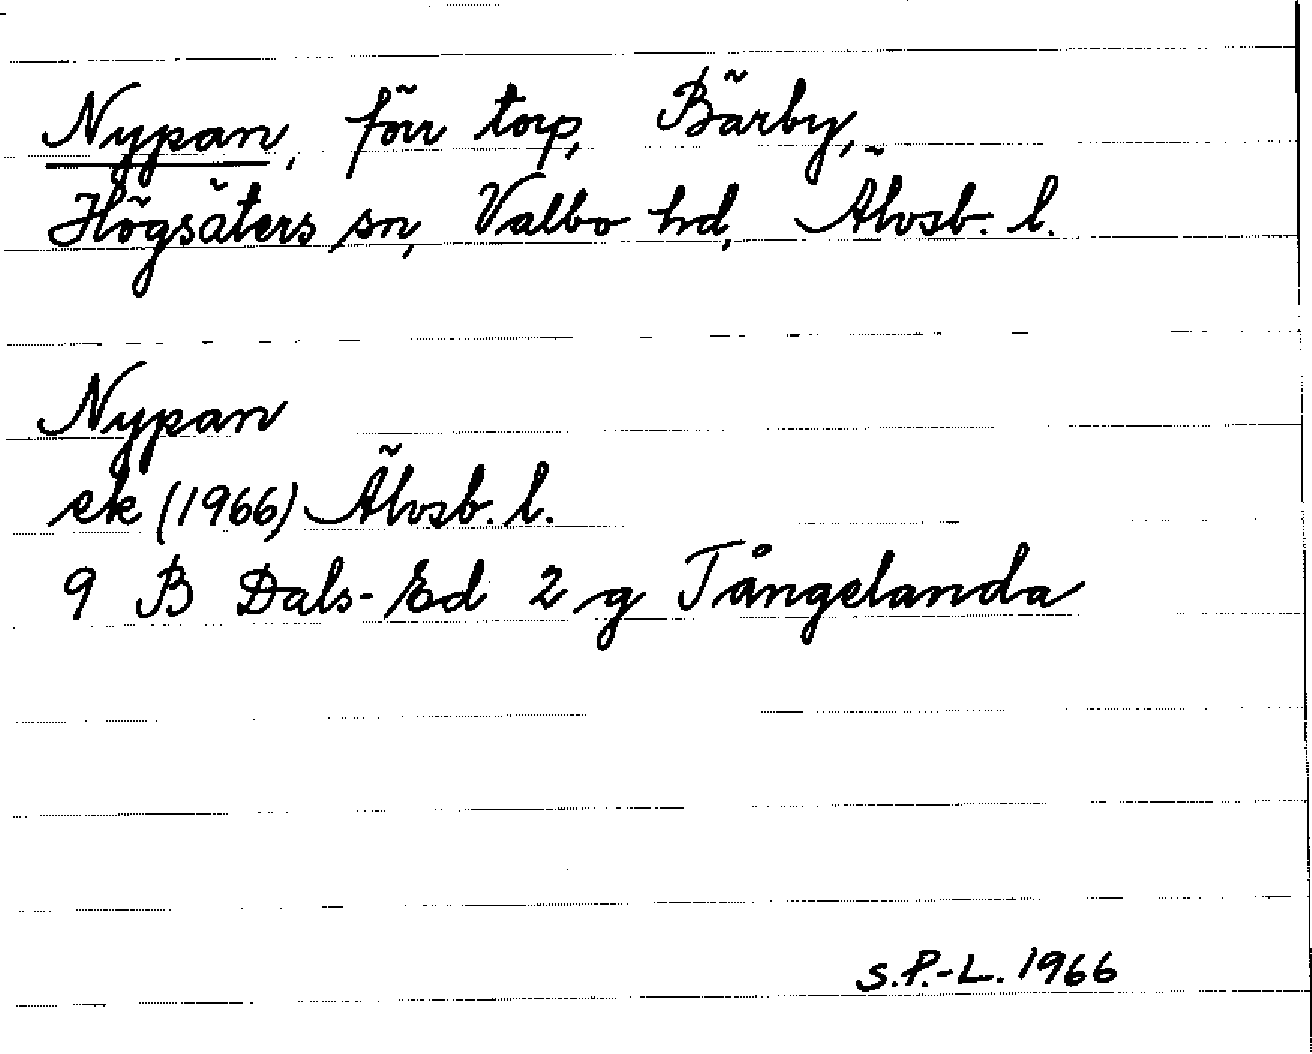 Nypan, förr torp, Bärby,
Högsäters sn, Valbo hd, Älvsb. l.
Nypan
ek (1966) Älvsb. l.
9 B Dals-Ed 2 g Tångelanda
S.P.-L. 1966